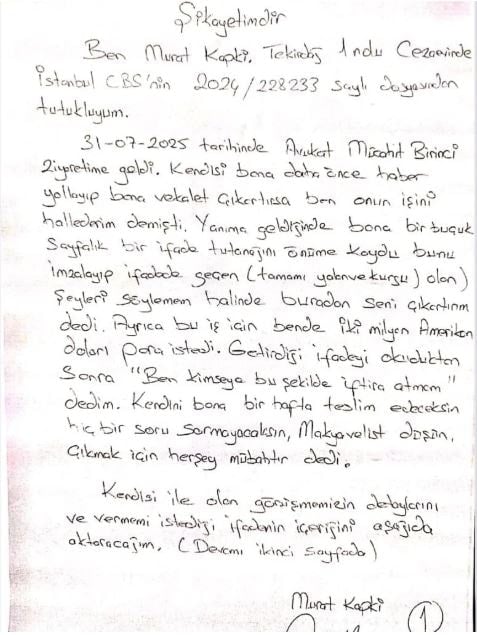 Şikayetimdir
Ben Murat Kapki. Tekirdağ 1 nolu Cezaevinde
İstanbul CBS'nin 2024/228233 sayılı dosyasından
tutukluyum.
31-07-2025 tarihinde Avukat Mücahit Birinci
ziyaretime geldi. Kendisi bana daha önce haber
yollayıp bana vekalet çıkartırsa ben onun işini
hallederim demişti. Yanıma geldiğinde bana bir buçuk
Sayfalık bir ifade tutanağını önüme koydu bunu
imzalayıp ifadede geçen (tamamı yalan ve kurgu) olan)
Şeyleri söylemem halinde buradan seni çıkartırım
dedi. Ayrıca bu iş için bende iki milyon Amerikan
doları para istedi. Getirdiği ifadeyi okuduktan
Sonra "Ben kimseye bu şekilde iftira atmam"
dedim. Kendini bana bir hafta teslim edeceksin
hiç bir soru sormayacaksın, Makyavelist düşün,
Çıkmak için herşey mübahtır dedi.
Kendisi ile olan görüşmemizin detaylarını
ve vermemi istediği ifadenin içeriğini aşağıda
aktaracağım. (Devamı ikinci sayfada)
Murat Kapki
1